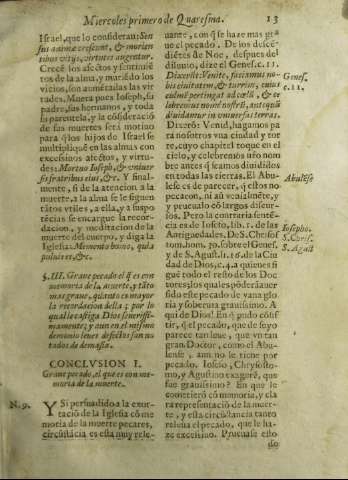 Miercoles primero de Quaresma. 13
Israel, que lo consideran: Sen
sus animæ crescunt, & morien
tibus vitijs, virtutes augentur.
Crecē los afectos y sentimiē
tos de la alma, y muriēdo los
vicios, son aumētadas las vir
tudes. Muera pues Ioseph, su
padre, sus hermanos, y toda
su parentela, y la cōsideraciō
de sus muertes serà motiuo
para q̃ los hijos de Israel se
multipliquē en las almas con
excesiuos afectos, y virtu-
des: Mortuo Ioseph, & vniuer
sis fratribus eius, &c. Y final-
mente, si de la atencion a la
muerte, a la alma se le siguen
tātos vtiles, a ella, y a suspo
tēcias se encargue la recor-
dacion, y meditacion de la
muerte del cuerpo, y diga la
Iglesia: Memento homo, quia
puluis es, &c.
§. III. Graue pecado el q̃ es con
memoria de la muerte, y tāto
mas graue, quāto es mayor
la recordacion della; por lo
qual le castiga Dios seueriss-
mamente; y aun en el mismo
demonio leues defectos san no
tados de demasia.
CONCLVSION I.
Graue pecado, el que es con me-
moria de la muerte.
N. 9. Y Si persuadido a la exor-
tació de la Iglesia cō me
moria de la muerte pecares,
circūstācia es esta muy rele-
uante, con q̃ se haze mas gra
ue el pecado. De los descē-
diētes de Noe, despues del
diluuio, dize el Genes. c. 11.
Dixerūt: Venite, faciamus no-
bis ciuitatem, & turrim, cuius
culmē pertingat ad cœlū, & ce
lebremus nomē nostrū, antequā
diuidamur in vniuersas terras.
Genes. c. 11.
Dixerō: Venid, hagamos pa
ra nosotros vna ciudad y tor
re, cuyo chapitel toque en el
cielo, y celebremos nrō nom
bre antes q̃ seamos diuididos
en todas las tierras. El Abu-
lese es de parecer, q̃ estos no
pecaron, ni aū venialmēte, y
Abulēse
prueualo cō largos discur-
sos. Pero la contraria sentē-
cia es de Iosefo, lib. 1. de las
Antiguedades. De S. Chrisos
tom. hom. 30. sobre el Genes.
y de S. Agust. li. 16. de la Ciu
dad de Dios, c. 4. a quienes si
Iosepho.
S. Chris.
S. Agust
guē todo el resto de los Doc
tores; los quales poderāauer
sido este pecado de vana glo
ria y soberuia grauissimo. A
qui de Dios! En q̃ pudo cōsis
tir, q̃ el pecado, que de suyo
parece tan leue, que vn tan
gran Doctor, como el Abu-
lense, aun no le tiene por
pecado. Iosefo, Chrysosto-
mo, y Agustino exagerē, que
fue grauissimo? En que le
cometierō cō memoria, y cla
ra representacō de la muer-
te, y esta circūstācia tanto
releua el pecado, que le ha-
ze excesiuo. Prueuase esto
do